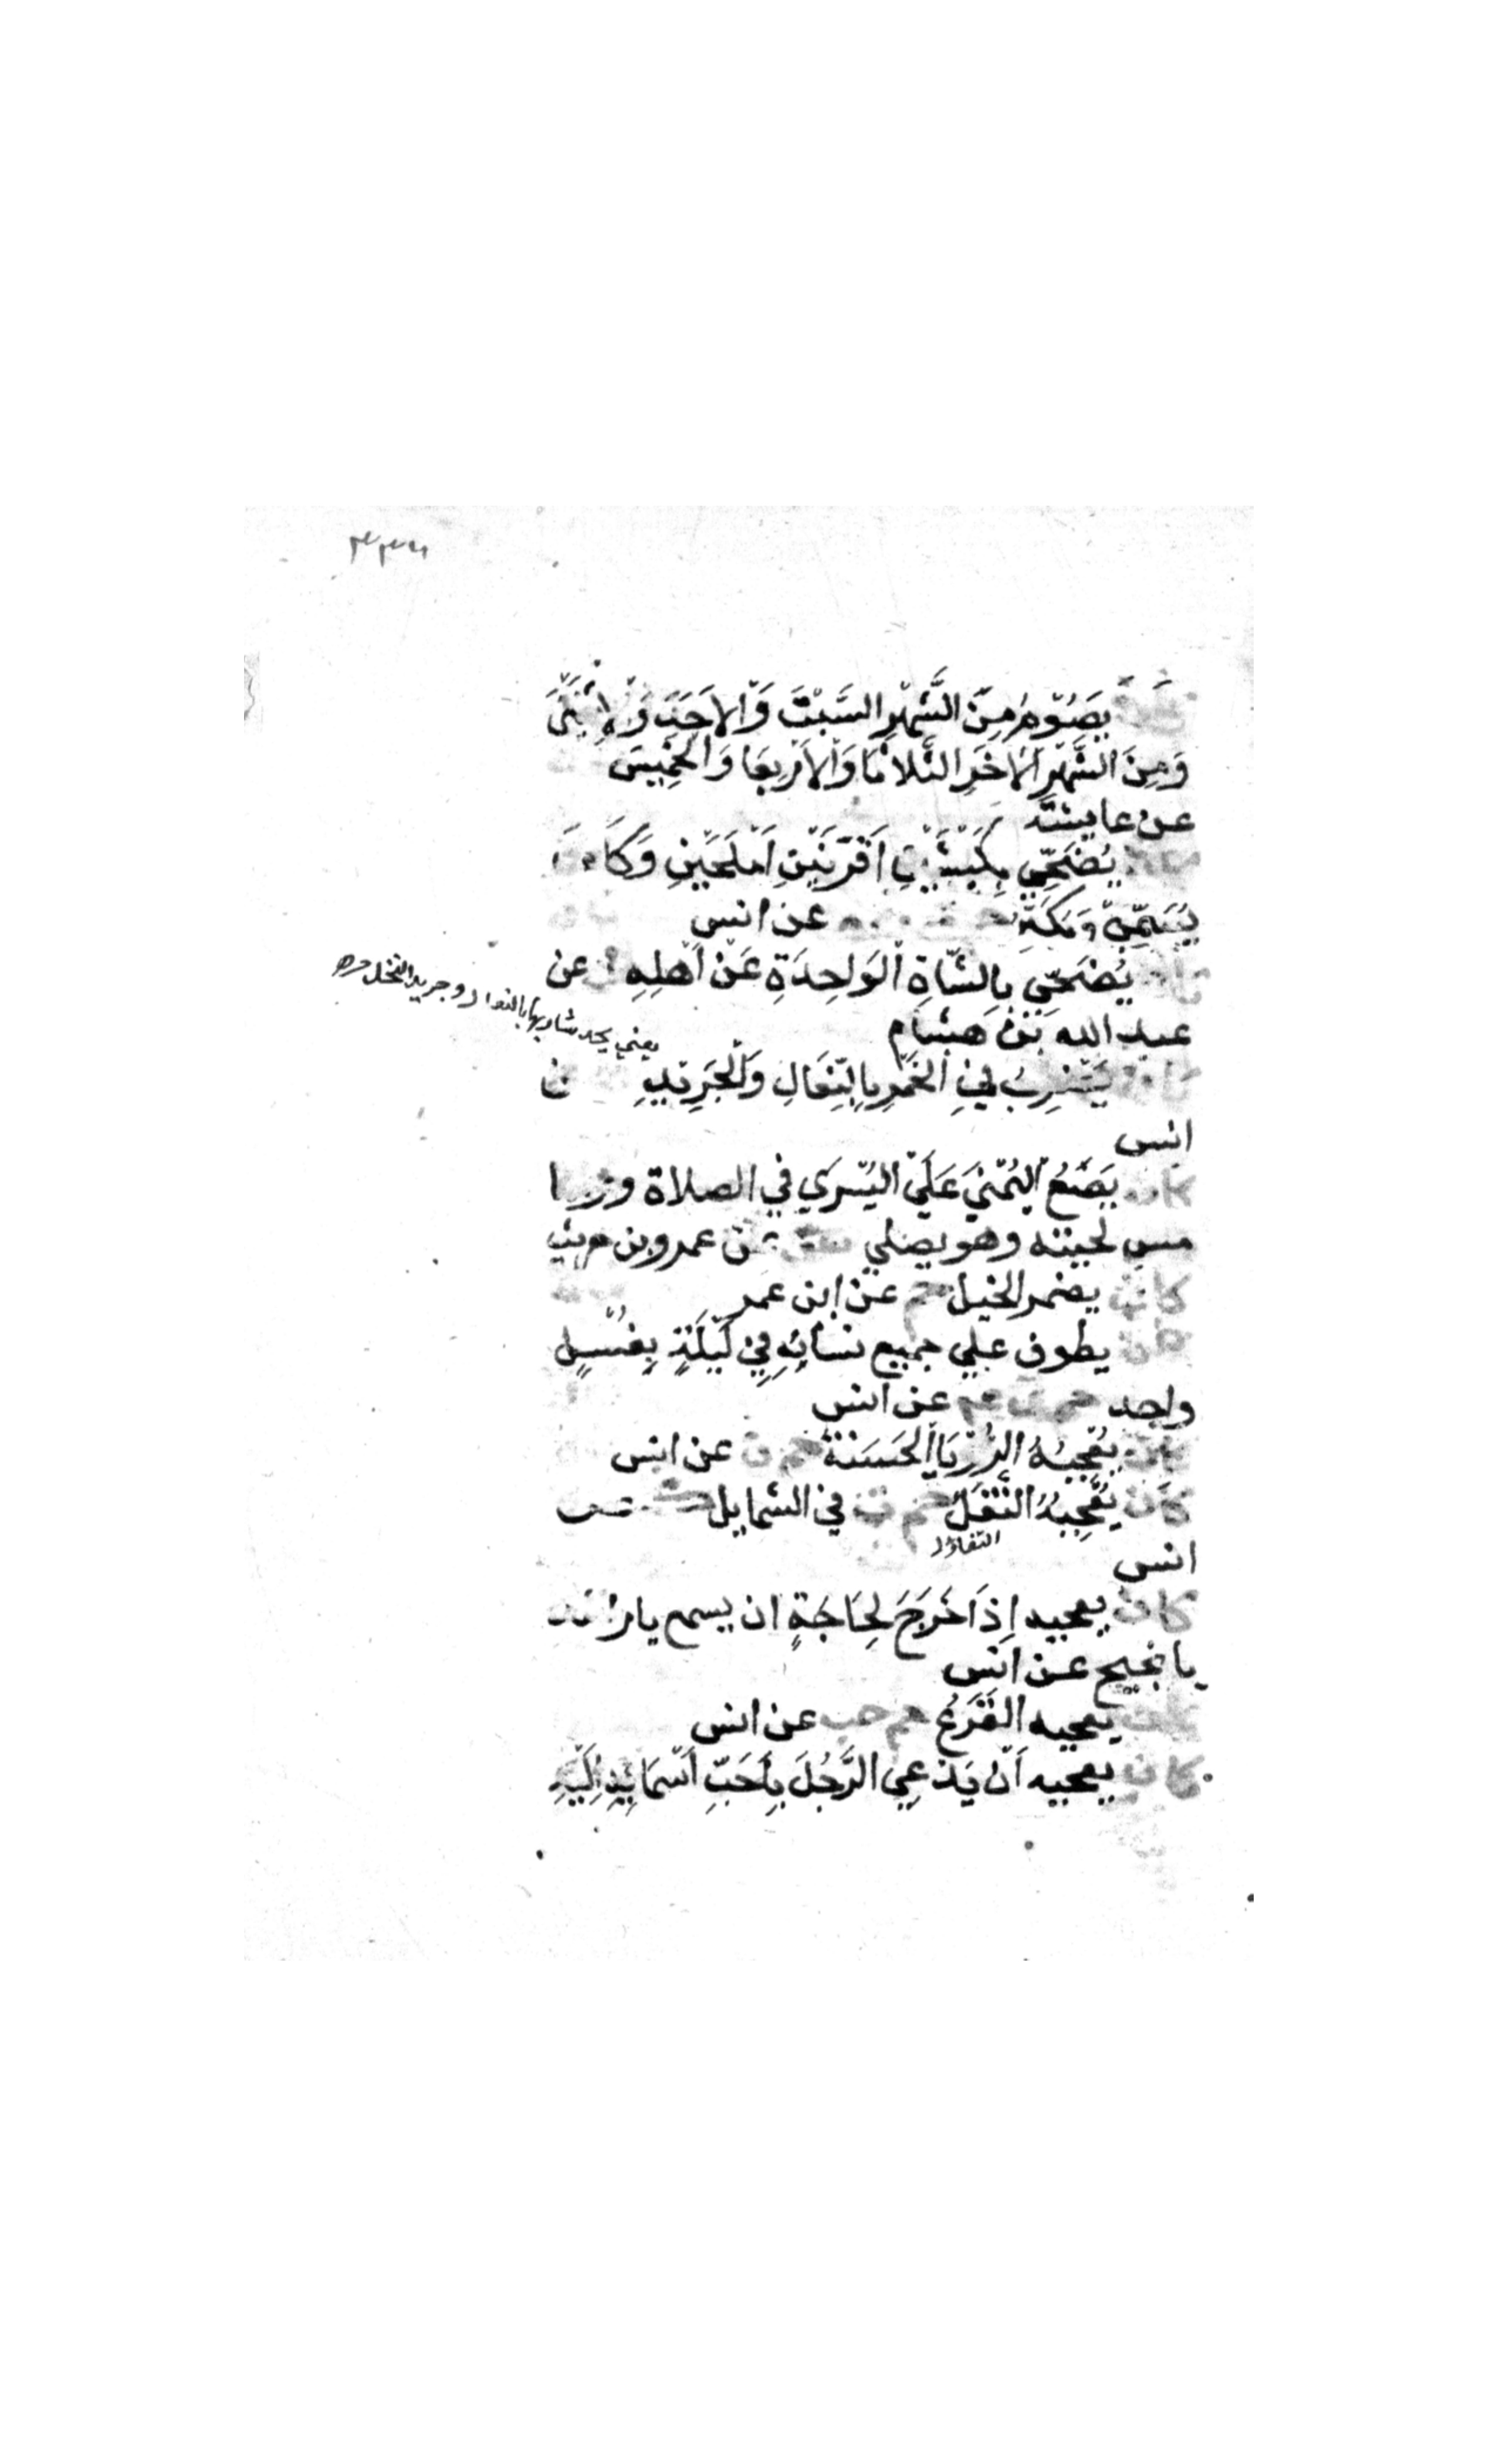 ٣٣٦
يَصُوْمُ مِنَ الشَّهْرِ السَّبْتَ وَالاَحَدَ وَالاِثْنَيْنَ
وَمِنَ الشَّهْرِ الاَخَرِ الثَّلاثَا وَالاَرْبِعَا وَالخَمِيسَ
عن عايشة
يُضَحِّي بِكَبْشَيْنِ اَقْرَنَيْنِ اَمْلَحَيْنِ وَكَانَ
يُسَمِّي وَيُكَبِّرُ عن انس
يُضَحِّي بِالشَّاةِ الوَاحِدَةِ عَنْ اَهْلِهِ عن
عبد الله بْنُ هِشَامٍ
يعني يحد شاربها بالنعال وجريد النخل
يَضْرِبُ فِي الخَمْرِ بِالنِّعَالِ وَالْجَرِيْدِ
انس
كان يَضَعُ اليُمْنَي عَلَي اليُسْرَي في الصلاة وربما
مس لحيته وهو يصلي عن عمرو بن حريث
كان يضمر الخيل حم عن ابن عمر
كان يطوف علي جميع نسائِهِ فِي لَيْلَةٍ بِغُسْلٍ
واحد عن انس
كان يُعْجِبُهُ الرُّؤيَا الحَسَنَةُ حم ن عن انس
كان يُعْجِبُهُ الثُّفْلُ حم ت في الشمايل
التفاؤل
انس
كان يعجبه اِذَا خَرَجَ لِحَاجَةٍ ان يسمع يا راشد
يا نجيح عن انس
كان يعجبه القَرْعُ حم حب عن انس
كان يعجبه اَنْ يَدْعِي الرَّجُلَ بِاَحَبِّ اَسْمَائِهِ اِلَيْهِ